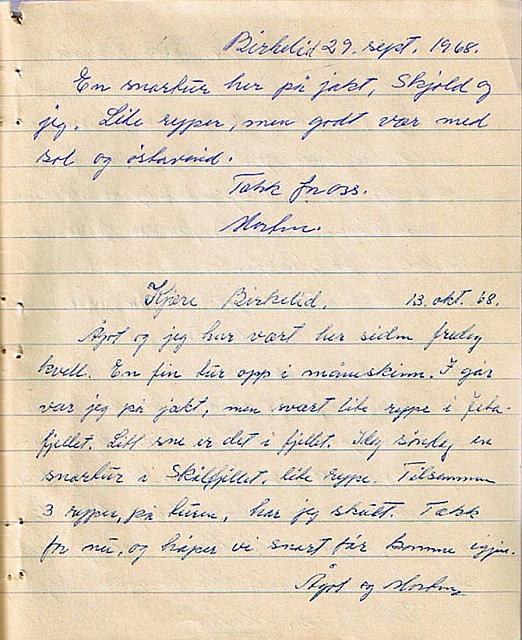 Birkelid 29. sept. 1968.
En snartur her på jakt, Skjold og
jeg. Lite ryper, men godt vær med
sol og østavind.
Takk for oss.
Morten.
Kjære Birkelid. 13. okt. 68.
Ågot og jeg har vært her siden fredag
kveld. En fin tur opp i måneskinn. I går
var jeg på jakt, men svært lite rype i
fjellet. Litt sne er det i fjellet. Idag søndag en
snartur i Skålfjellet, lite rype. Tilsammen
3 ryper, på turen, har jeg skutt. Takk
for nå, og håper vi snart får komme igjen.
Ågot og Morten